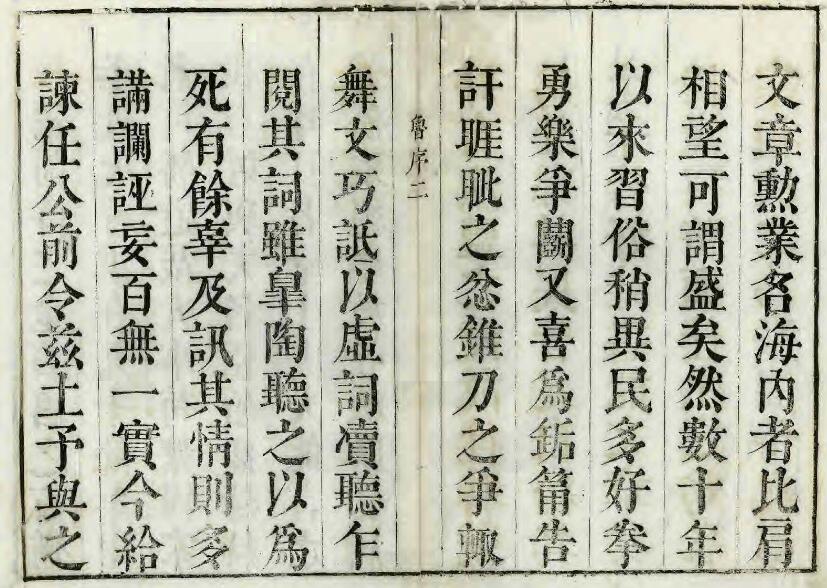 文章勲業名海內者比肩
相望可謂盛矣然數十年
以來習俗稍異民多好拳
勇樂爭鬬又喜為鉐筩告
訐睚眦之忿錐刀之爭輙
魯序二
舞文巧詆以虛詞凟聽乍
閱其詞雖臯陶聽之以為
死有餘辜及訊其情則多
謡讕誣妄百無一實今給
諫任公前令茲土予與之